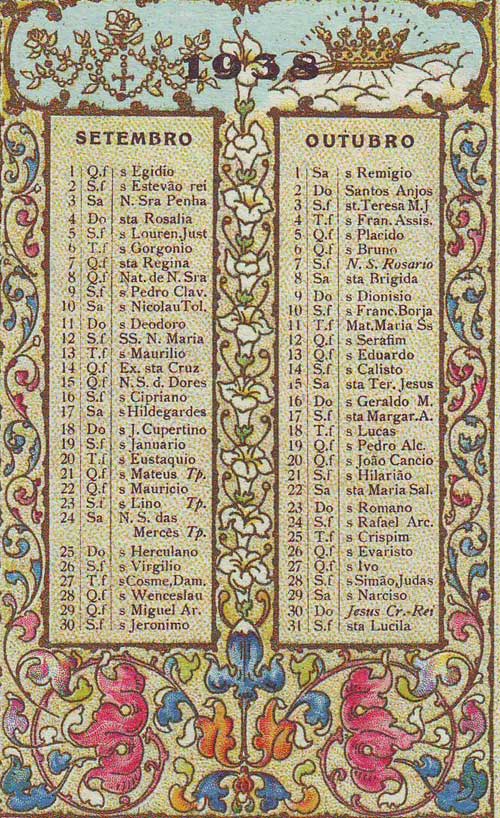 1938
SETEMBRO
1 Q.f s Egidio
2 S.f s Estevão rei
3 Sa N. Sra Penha
4 Do sta Rosalia
5 S.f s Louren.Just
6 T.f s Gorgonio
7 Q.f sta Regina
8 Q.f Nat. de N. Sra
9 S.f s Pedro Clav.
10 Sa s NicolauTol.
11 Do s Deodoro
12 S.f SS. N. Maria
13 T.f s Maurilio
14 Q.f Ex. sta Cruz
15 Q.f N. S. d. Dores
16 S.f s Cipriano
17 Sa s Hildegardes
18 Do s J. Cupertino
19 S.f s Januario
20 T.f s Eustaquio
21 Q.f s Mateus Tp.
22 Q.f s Mauricio
23 S.f s Lino Tp.
24 Sa N. S. das
Mercês Tp.
25 Do s Herculano
26 S.f s Virgilio
27 T.f s Cosme,Dam.
28 Q.f s Wenceslau
29 Q.f s Miguel Ar.
30 S.f s Jeronimo
OUTUBRO
1 Sa s Remigio
2 Do Santos Anjos
3 S.f st.Teresa M.J
4 T.f s Fran. Assis.
5 Q.f s Placido
6 Q.f s Bruno
7 S.f N. S. Rosario
8 Sa sta Brigida
9 Do s Dionisio
10 S.f s Franc.Borja
11 T.f Mat.Maria Ss
12 Q.f s Serafim
13 Q.f s Eduardo
14 S.f s Calisto
15 Sa sta Ter. Jesus
16 Do s Geraldo M.
17 S.f sta Margar.A.
18 T.f s Lucas
19 Q.f s Pedro Alc.
20 Q.f s João Cancio
21 S.f s Hilarião
22 Sa sta Maria Sal.
23 Do s Romano
24 S.f s Rafael Arc.
25 T.f s Crispim
26 Q.f s Evaristo
27 Q.f s Ivo
28 S.f s Simão,Judas
29 Sa s Narciso
30 Do Jesus Cr.-Rei
31 S.f sta Lucila